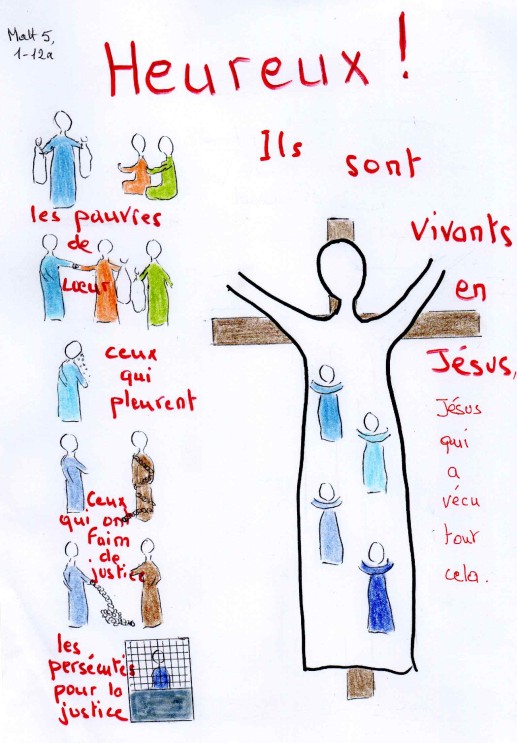 Matt 5,
1-12a
Heureux !
Ils sont
vivants
en
Jésus,
Jésus
qui
a
vécu
tout
cela.
les pauvres
de
cœur
ceux
qui
pleurent
Ceux
qui ont
Faim
de
justice
les
persécutés
pour la
justice